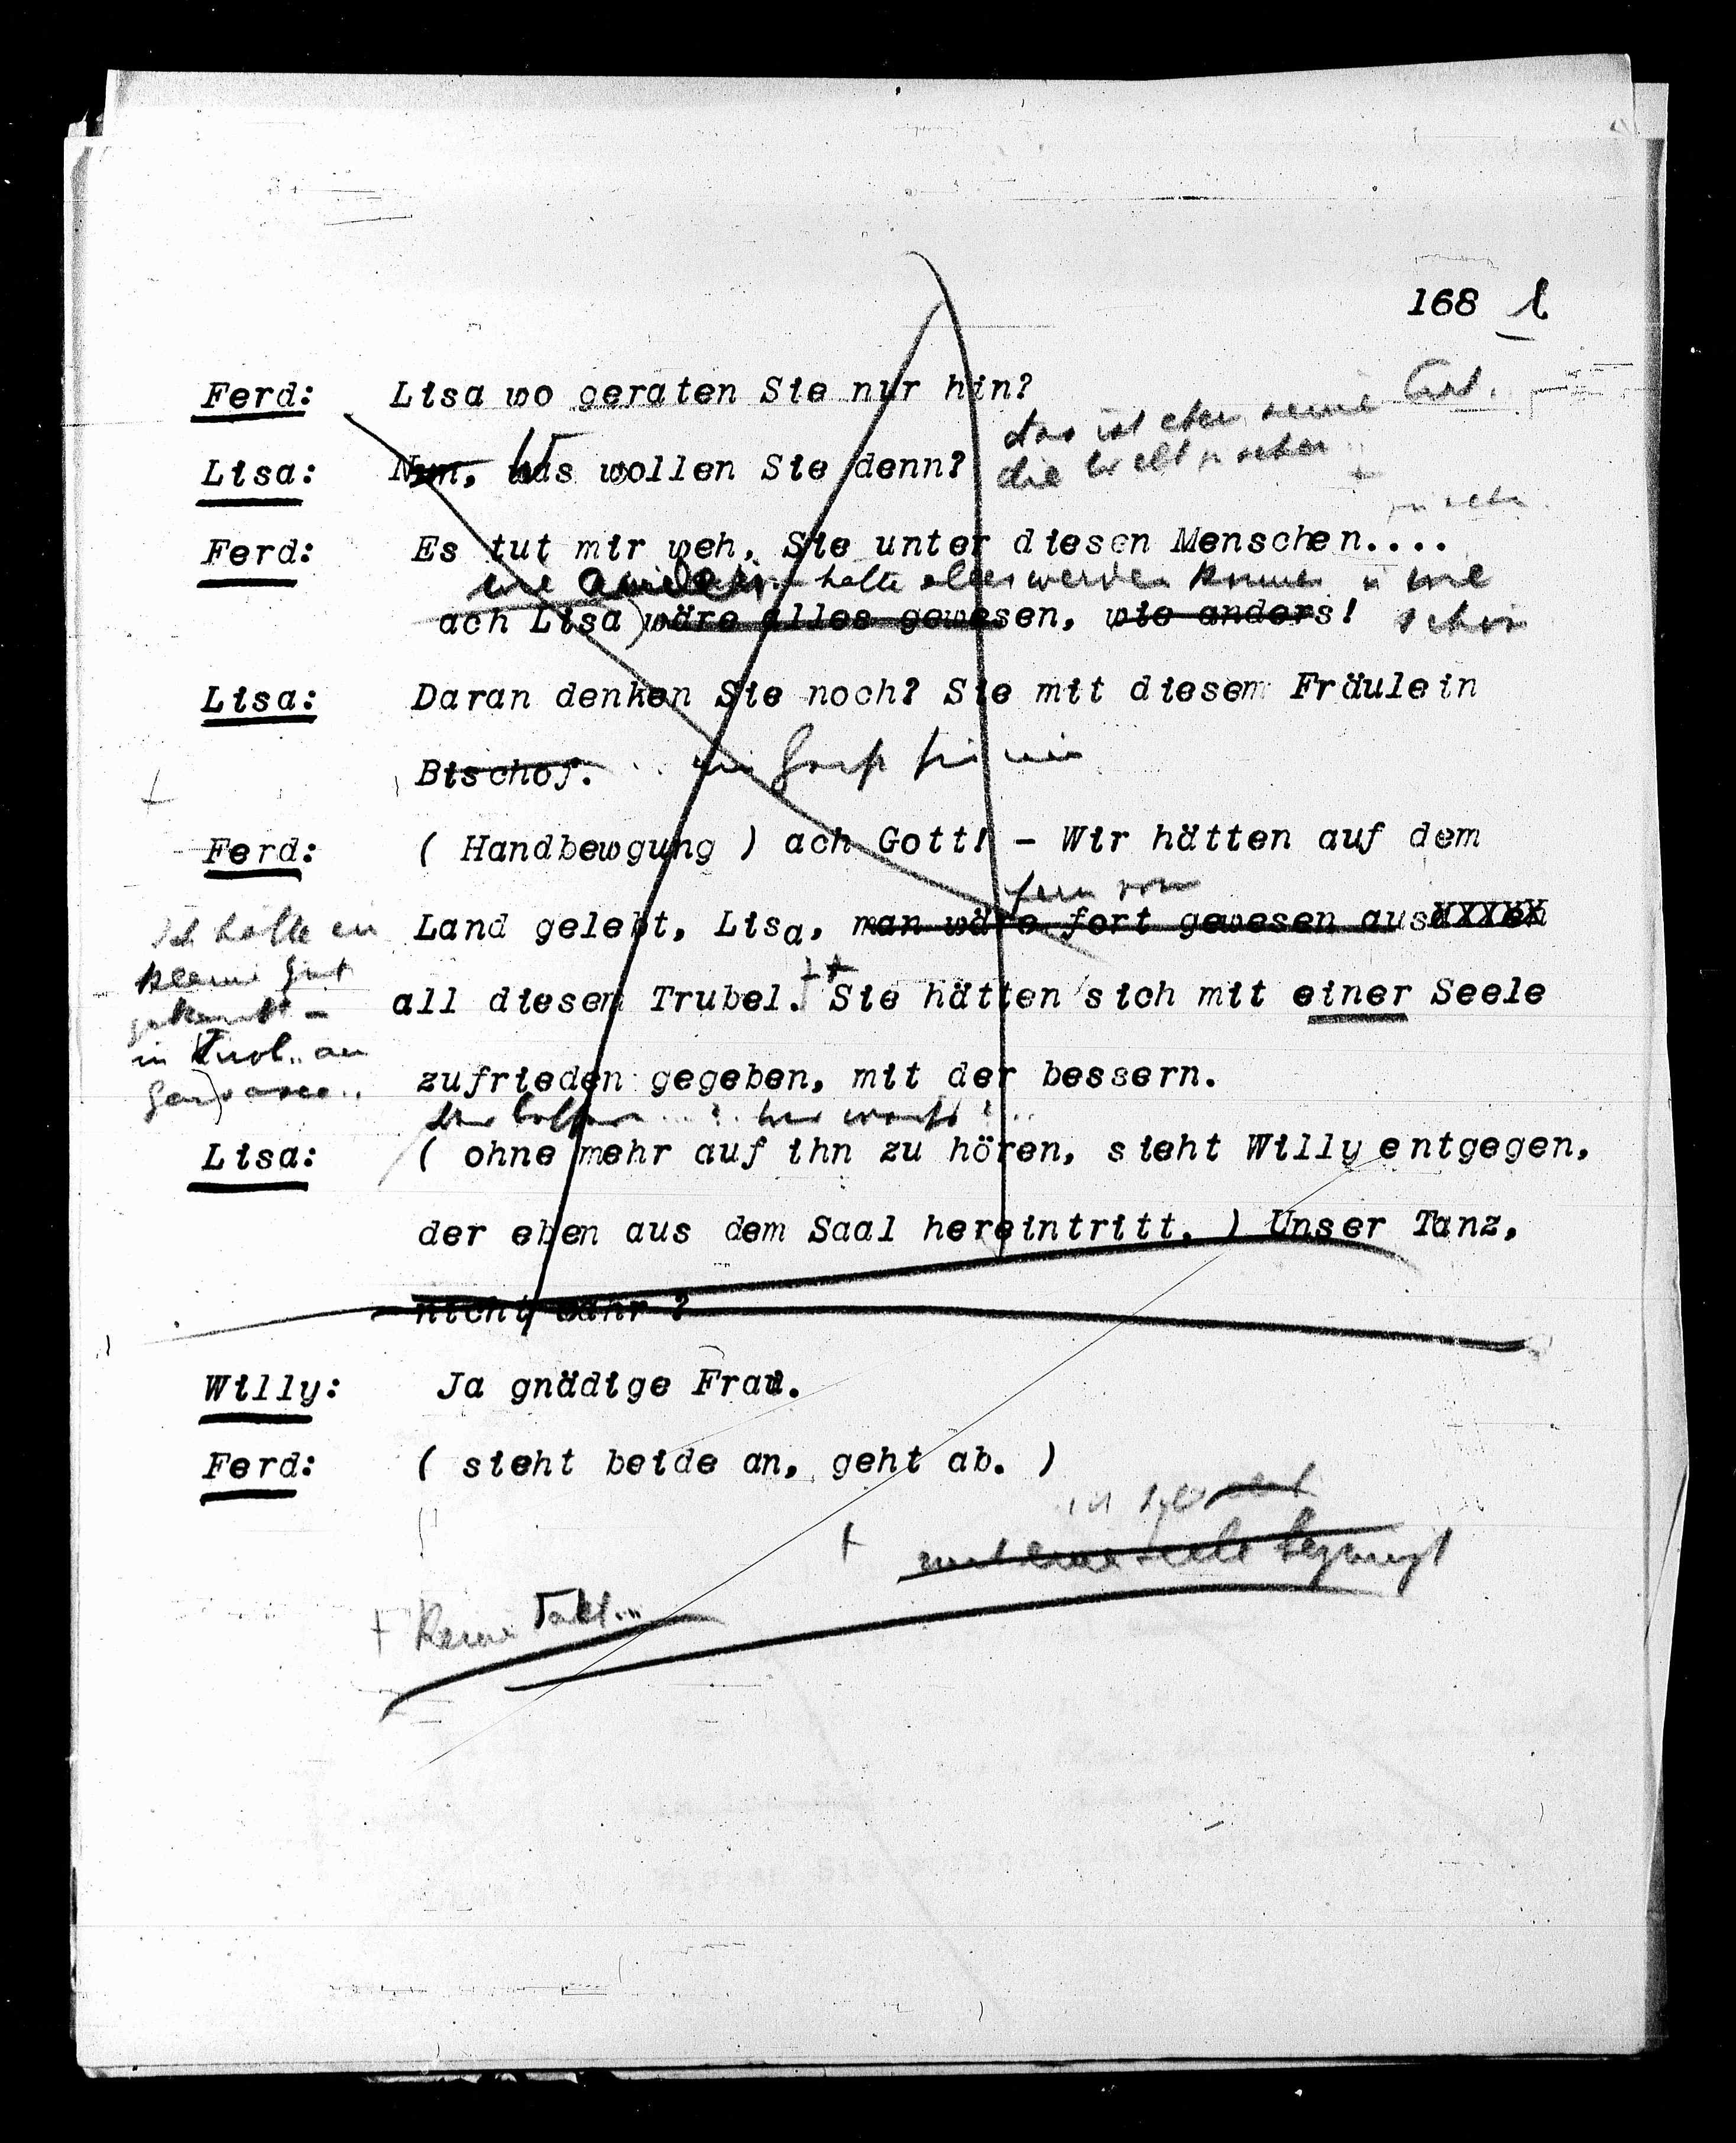 168
Ferd: Lisa wo geraten Sie nur hin?
das ist eben seine Art.
Lisa: Nun, Was wollen Sie denn?
die
Ferd: Es tut mir weh, Sie unter diesen Menschen....
wie anders hätte alles werden können u wie
ach Lisa) wäre alles gewesen, wie anders! schön
Lisa: Daran denken Sie noch? Sie mit diesem Fräulein
Bischof.
Ferd: ( Handbewgung ) ach Gott! - Wir hätten auf dem
fern von
Land gelebt, Lisa, man wäre fort gewesen aus
Ich hätte ein
kleines Gut
gekauft -
in Tirol.. am
Gardasee..
all diesem Trubel. Sie hätten sich mit einer Seele
zufrieden gegeben, mit der bessern.
Lisa: ( ohne mehr auf ihn zu hören, sieht Willy entgegen,
der eben aus dem Saal hereintritt. ) Unser Tanz,
nicht wahr ?
Willy: Ja gnädige Frau.
Ferd: ( sieht beide an, geht ab. )
mit einer Seele begnügt